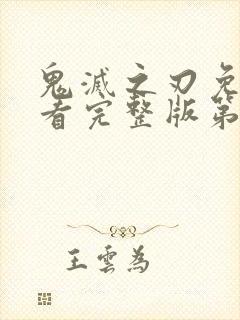 鬼滅之刃免
看完整版第
王雲為